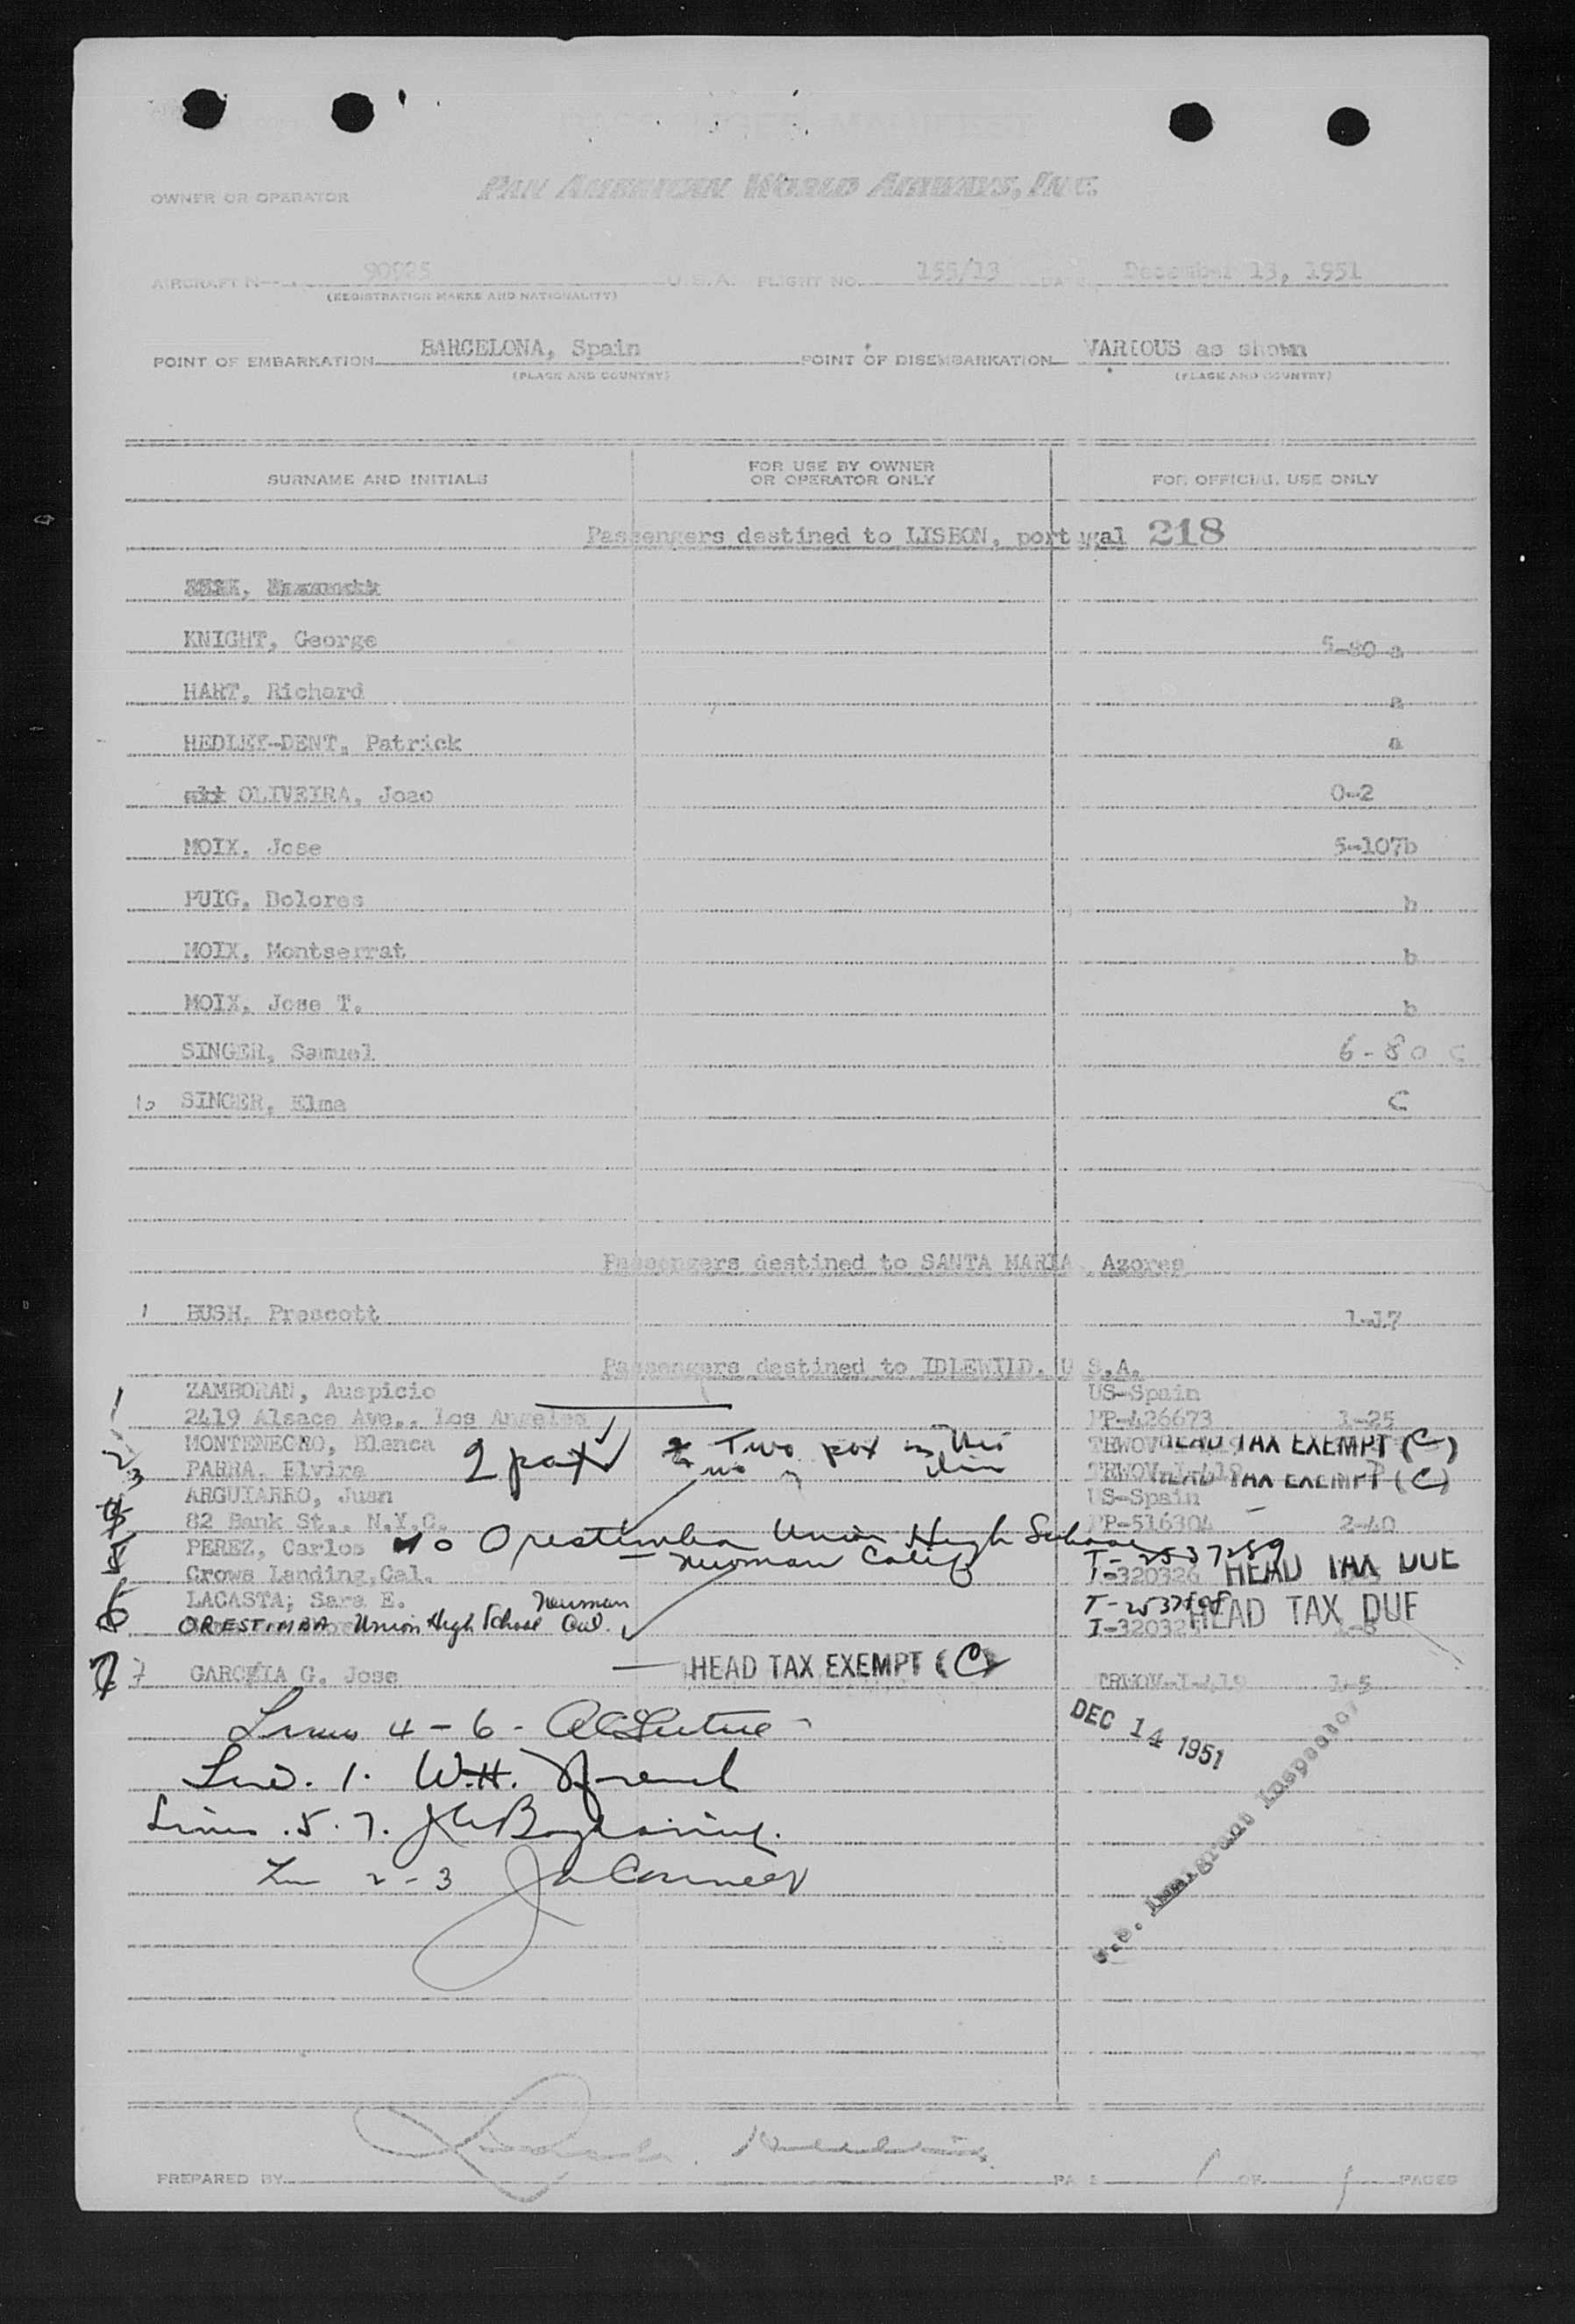 OWNER OR OPERATOR PAN AMERICAN WORLD AIRWAYS, INC.
AIRCRAFT 90925 U.S.A. FLIGHT NO. 155/13 DATE December 13, 1951
(REGISTRATION MARKS AND NATIONALITY)
POINT OF EMBARKATION BARCELONA, Spain POINT OF DISEMBARKATION VARIOUS as shown
(PLACE AND COUNTRY) (PLACE AND COUNTRY)
SURNAME AND INITIALS FOR USE BY OWNER OR OPERATOR ONLY FOR OFFICIAL USE ONLY
Passengers destined to LISBON, portugal 218
KNIGHT, George 5-80 a
HART, Richard a
HEDLEY-DENT, Patrick a
OLIVEIRA, Joao 0-2
MOIX, Jose 5-107b
PUIG, Dolores b
MOIX, Montserrat b
MOIX, Jose T. b
SINGER, Samuel 6-80 c
10 SINGER, Elma C
Passengers destined to SANTA MARIA, Azores
1 BUSH, Prescott 1-17
Passengers destined to IDLEWILD, U.S.A.
1 ZAMBORAN, Auspicio US-Spain
2419 Alsace Ave., Los Angeles PP-426673 1-25
2 MONTENEGRO, Blanca 2 pax Two pax in this TRWOV HEAD TAX EXEMPT (C)
3 PARRA, Elvira line TRWOV HEAD TAX EXEMPT (C)
ARGUIARRO, Juan US-Spain
82 Bank St., N.Y.C. PP-516304 2-40
PEREZ, Carlos Orestimba Union High School T-2537259
Crows Landing, Cal. Newman Calif I-320326 HEAD TAX DUE
6 LACASTA; Sara E. Newman
ORESTIMBA Union High School Cal. HEAD TAX DUE
7 7 GARCIA G. Jose HEAD TAX EXEMPT (C) TRWOV-I-419 1-5
Lines 4-6-
DEC 14 1951
Line. 1. W.H. French
U.S. Immigrant Inspector
Lines. 5. 7.
2-3
PREPARED BY PAGE 1 OF 1 PAGES